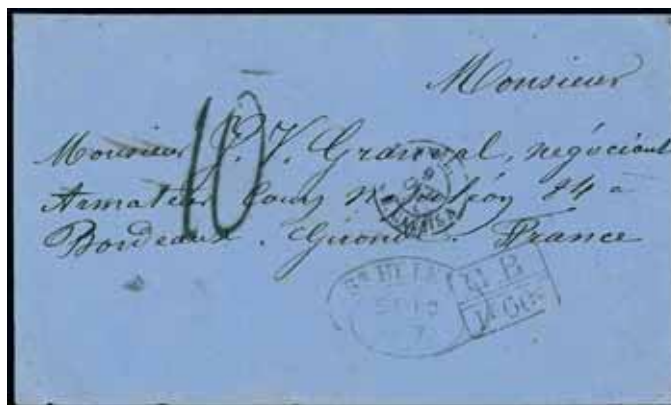 Monsieur
Monsieur J. V. Grandval, négociant
Armateur Cours Napoléon 84 à
Bordeaux. Gironde. France
10
CALAIS
ST HELENA
G B
1F 60c